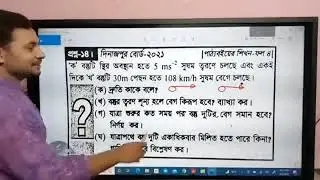 প্রশ্ন-১৪। দিনাজপুর বোর্ড-২০২১ [পাঠ্যবইয়ের শিখন-ফল ৪]
'ক' বস্তুটি স্থির অবস্থান হতে 5 ms⁻² সুষম ত্বরণে চলছে এবং একই
দিকে 'খ' বস্তুটি 30m পেছন হতে 108 km/h সুষম বেগে চলছে।
(ক) দ্রুতি কাকে বলে?
(খ) বস্তুর ত্বরণ শূন্য হলে বেগ কিরূপ হবে? ব্যাখ্যা কর।
(গ) যাত্রা শুরুর কত সময় পর বস্তু দুটির বেগ সমান হবে?
নির্ণয় কর।
(ঘ) যাত্রাপথে বস্তু দুটি একাধিকবার মিলিত হতে পারে কিনা?
বিশ্লেষণ কর।